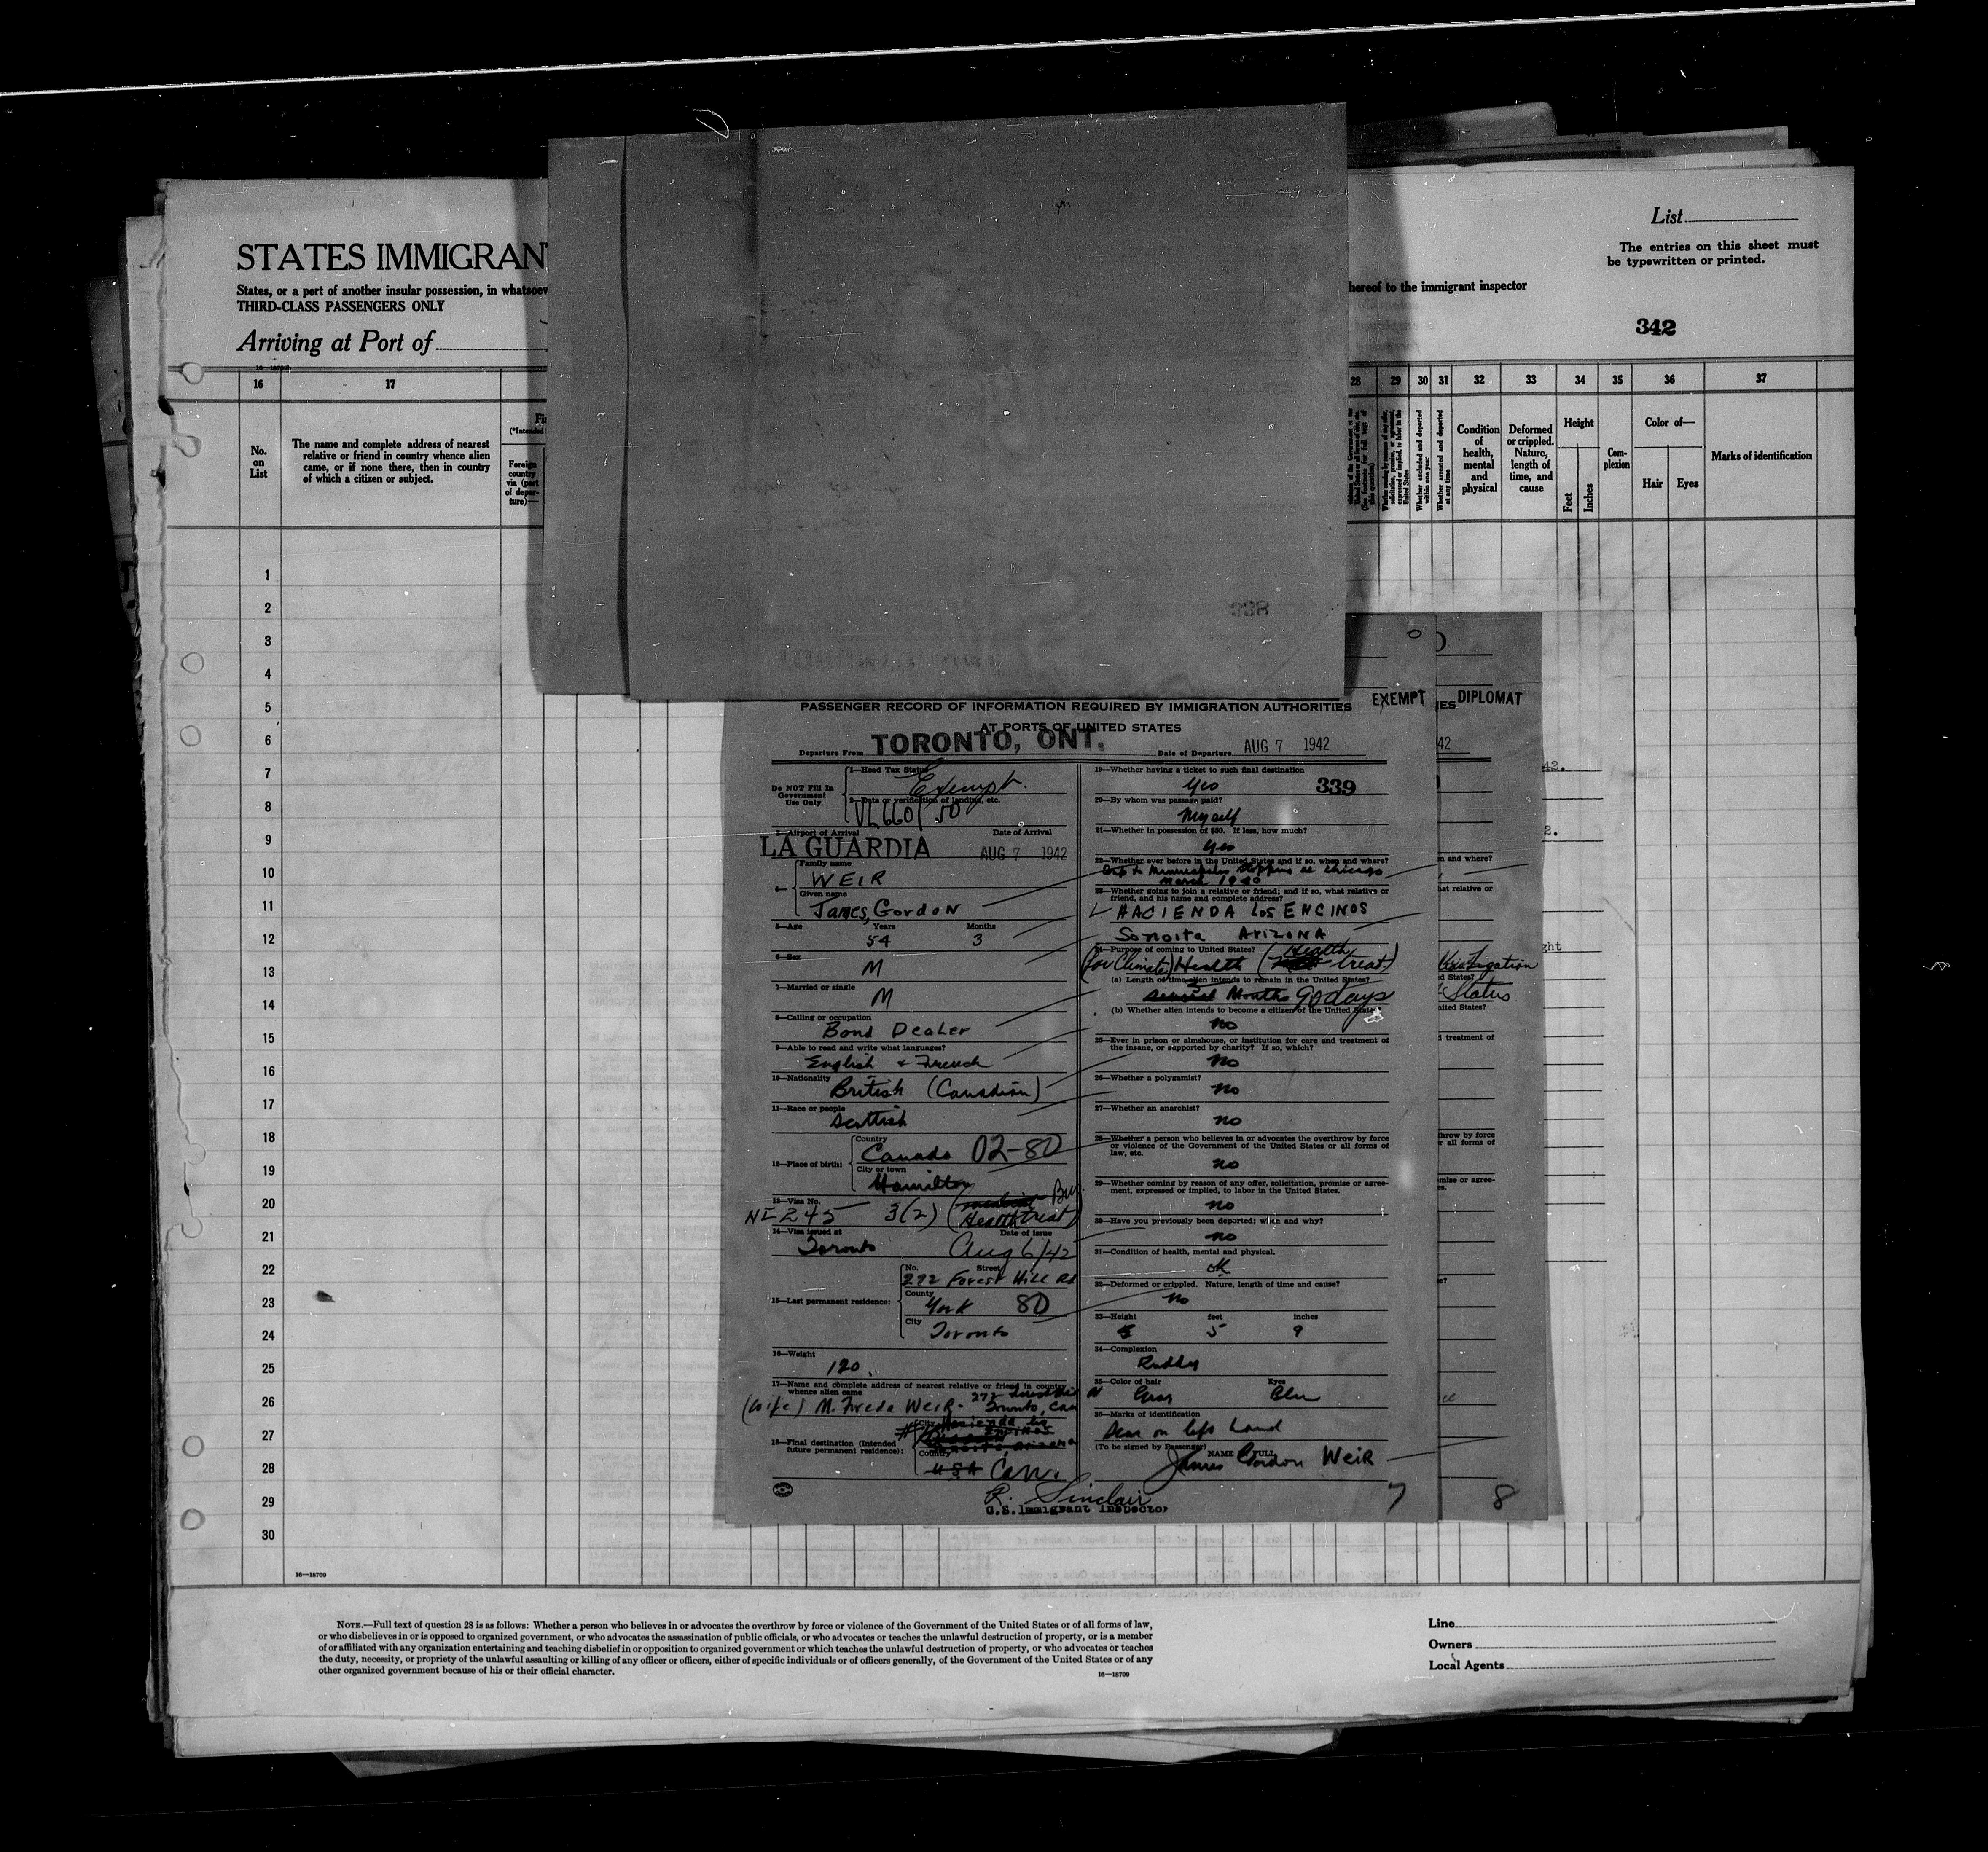 List
The entries on this sheet must
be typewritten or printed.
STATES IMMIGRAN
States, or a port of another insular possession, in whatsoev
hereof to the immigrant inspector
THIRD-CLASS PASSENGERS ONLY
342
Arriving at Port of
16 17 28 29 30 31 32 33 34 35 36 37
No.
on
List
The name and complete address of nearest
relative or friend in country whence alien
came, or if none there, then in country
of which a citizen or subject.
Foreign
country
via (port
of depar-
ture)—
Whether excluded and deported
within one year
Whether arrested and deported
at any time
Condition
of
health,
mental
and
physical
Deformed
or crippled.
Nature,
length of
time, and
cause
Height
Feet
Inches
Com-
plexion
Color of—
Hair Eyes
Marks of identification
1
2
3
4
5
6
7
8
9
10
11
12
13
14
15
16
17
18
19
20
21
22
23
24
25
26
27
28
29
30
338
EXEMPT
DIPLOMAT
PASSENGER RECORD OF INFORMATION REQUIRED BY IMMIGRATION AUTHORITIES
AT PORTS OF UNITED STATES
Departure From TORONTO, ONT.
Date of Departure AUG 7 1942
Do NOT Fill In
Government
Use Only
1—Head Tax Status
Exempt.
2—Data or verification of landing, etc.
3—Airport of Arrival Date of Arrival
LA GUARDIA AUG 7 1942
4— Family name
WEIR
Given name
James, Gordon
5—Age Years Months
54 3
6—Sex
M
7—Married or single
M
8—Calling or occupation
Bond Dealer
9—Able to read and write what languages?
English + French
10—Nationality
British (Canadian)
11—Race or people
Scottish
12—Place of birth: Country
Canada 02-80
City or town
Hamilton
13—Visa No.
NI-245 3(2)
Health treat)
14—Visa issued at Date of issue
Toronto Aug 6/42
15—Last permanent residence: No. Street
272 Forest Hill Rd
County
York 80
City
Toronto
16—Weight
120
17—Name and complete address of nearest relative or friend in country
whence alien came
(wife) M. Freda Weir - Toronto, Can
18—Final destination (Intended
future permanent residence):
City
Country
USA Can.
19—Whether having a ticket to such final destination
yes 339
20—By whom was passage paid?
Myself
21—Whether in possession of $50. If less, how much?
yes
22—Whether ever before in the United States and if so, when and where?
Trip to Minneapolis stopping at Chicago
March 1940
23—Whether going to join a relative or friend; and if so, what relative or
friend, and his name and complete address?
HACIENDA LOS ENCINOS
Sonoita ARIZONA
24—Purpose of coming to United States?
(for Climate) Health (Health treat)
(a) Length of time alien intends to remain in the United States?
Months 90 days
(b) Whether alien intends to become a citizen of the United States
no
25—Ever in prison or almshouse, or institution for care and treatment of
the insane, or supported by charity? If so, which?
No
26—Whether a polygamist?
no
27—Whether an anarchist?
no
28—Whether a person who believes in or advocates the overthrow by force
or violence of the Government of the United States or all forms of
law, etc.
no
29—Whether coming by reason of any offer, solicitation, promise or agree-
ment, expressed or implied, to labor in the United States.
no
30—Have you previously been deported; when and why?
no
31—Condition of health, mental and physical.
OK
32—Deformed or crippled. Nature, length of time and cause?
no
33—Height feet inches
5 9
34—Complexion
Ruddy
35—Color of hair Eyes
Gray Blue
36—Marks of identification
Scar on left hand
(To be signed by Passenger)
NAME IN FULL
James Gordon Weir
R. Sinclair
U.S. Immigrant Inspector
7
8
16—18709
NOTE.—Full text of question 28 is as follows: Whether a person who believes in or advocates the overthrow by force or violence of the Government of the United States or of all forms of law,
or who disbelieves in or is opposed to organized government, or who advocates the assassination of public officials, or who advocates or teaches the unlawful destruction of property, or is a member
of or affiliated with any organization entertaining and teaching disbelief in or opposition to organized government or which teaches the unlawful destruction of property, or who advocates or teaches
the duty, necessity, or propriety of the unlawful assaulting or killing of any officer or officers, either of specific individuals or of officers generally, of the Government of the United States or of any
other organized government because of his or their official character.
16—18709
Line
Owners
Local Agents